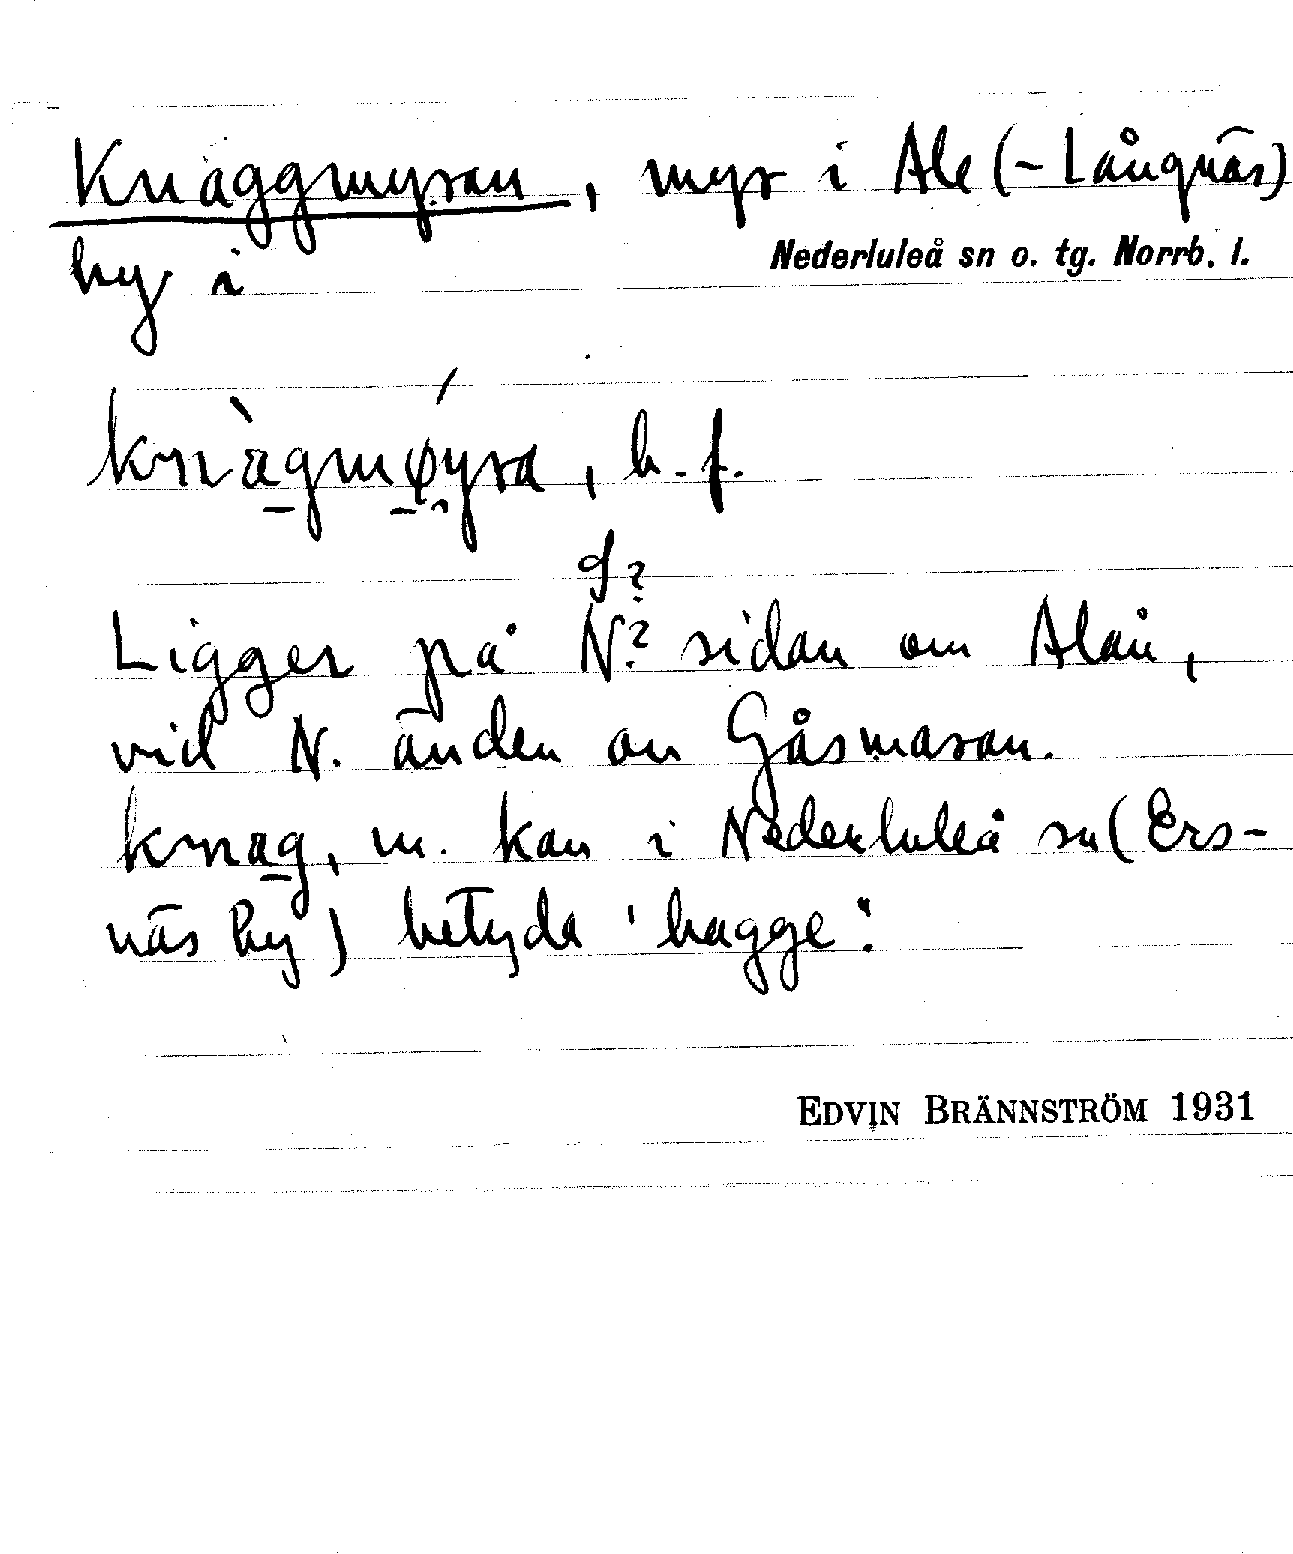 Knaggmyran, myr i Ale (-Långnäs)
by i Nederluleå sn o. tg. Norrb. l.
knàgmǿyra, b. f.
S?
Ligger på N? sidan om Alån,
vid N. änden av Gåsmaran.
knag, m. kan i Nederluleå sn (Ers-
näs by) betyda 'bagge'.
EDVIN BRÄNNSTRÖM 1931